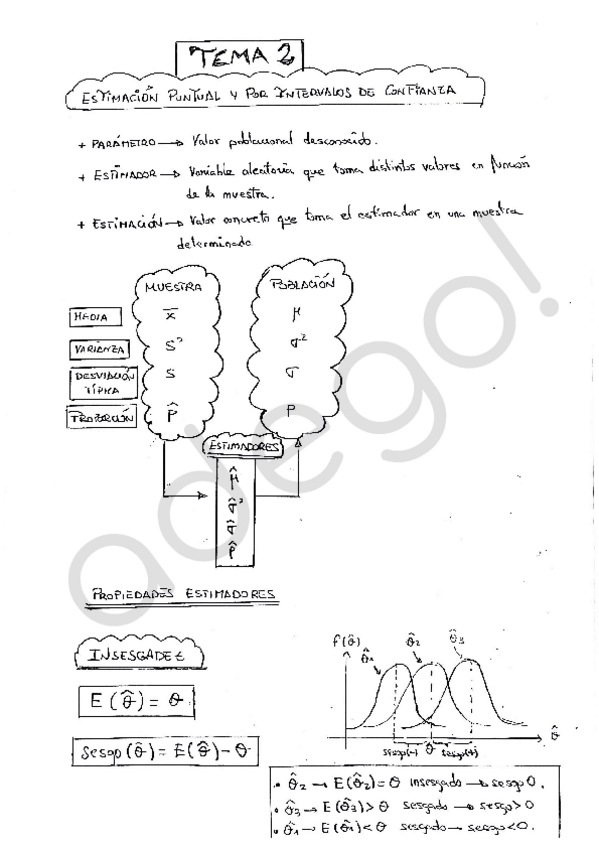 TEMA 2
ESTIMACIÓN PUNTUAL Y POR INTERVALOS DE CONFIANZA
+ PARÁMETRO → Valor poblacional desconocido.
+ ESTIMADOR → Variable aleatoria que toma distintos valores en función
de la muestra.
+ ESTIMACIÓN → Valor concreto que toma el estimador en una muestra
determinada
MUESTRA POBLACIÓN
MEDIA x̅ μ
VARIANZA S² σ²
DESVIACIÓN
TÍPICA S σ
PROPORCIÓN p̂ P
ESTIMADORES
μ̂
σ̂²
σ̂
p̂
adiego!
PROPIEDADES ESTIMADORES
INSESGADEZ
E(θ̂) = θ
Sesgo(θ̂) = E(θ̂) - θ
f(θ̂) θ̂1 θ̂2 θ̂3
θ̂
sesgo(-) θ sesgo(+)
• θ̂2 → E(θ̂2) = θ insesgado → sesgo 0.
• θ̂3 → E(θ̂3) > θ sesgado → sesgo > 0
• θ̂1 → E(θ̂1) < θ sesgado → sesgo < 0.